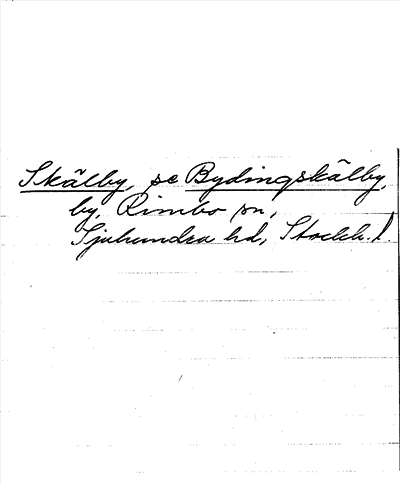 Skälby, se Bydingskälby,
by, Rimbo sn,
Sjuhundra hd, Stockh. l.